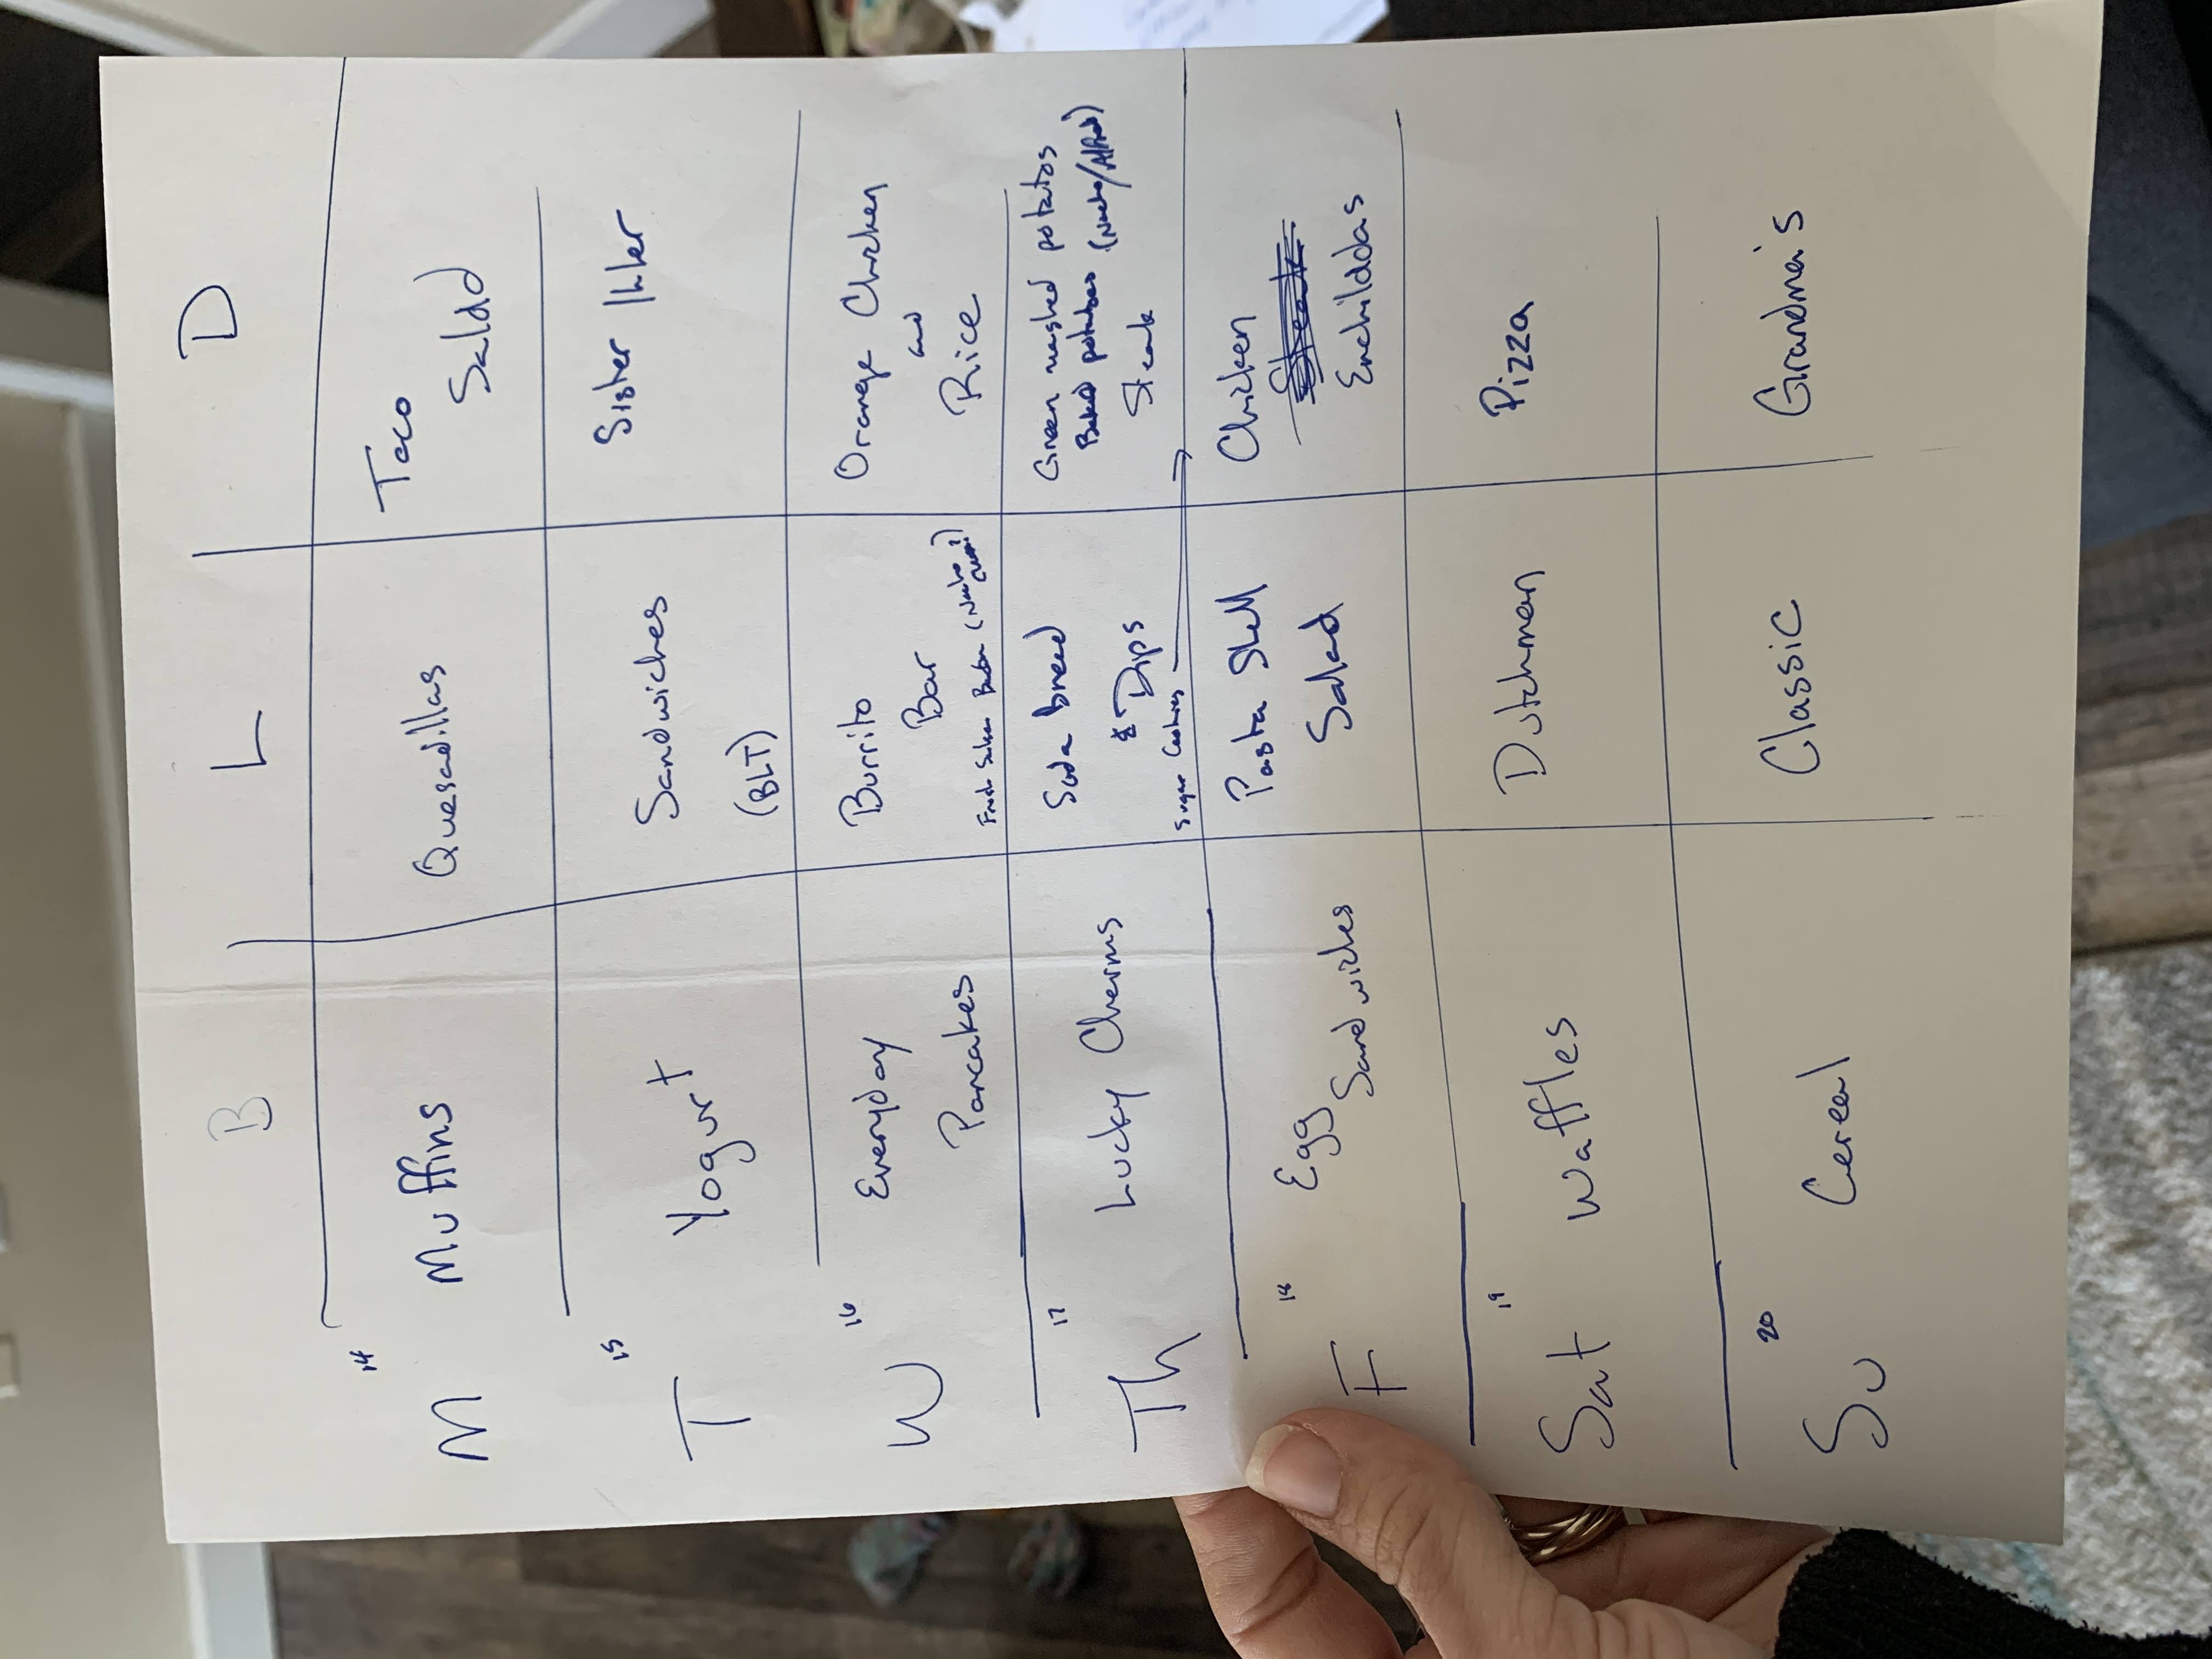 B L D
M 14 Muffins Quesadillas Taco
Salad
T 15 Yogurt Sandwiches
(BLT) Sister Ihler
W 16 Everyday
Pancakes Burrito
Bar
Orange Chicken
and
Rice
Th 17 Lucky Charms Soda bread
& Dips
Sugar Cookies
Green mashed potatos
Baked potatoes (Nacho/Alfredo)
Steak
F 18 Egg
Sandwiches Pasta Shell
Salad Chicken
Steak
Enchiladas
Sat 19 Waffles Dutchman Pizza
Su 20 Cereal Classic Grandma's